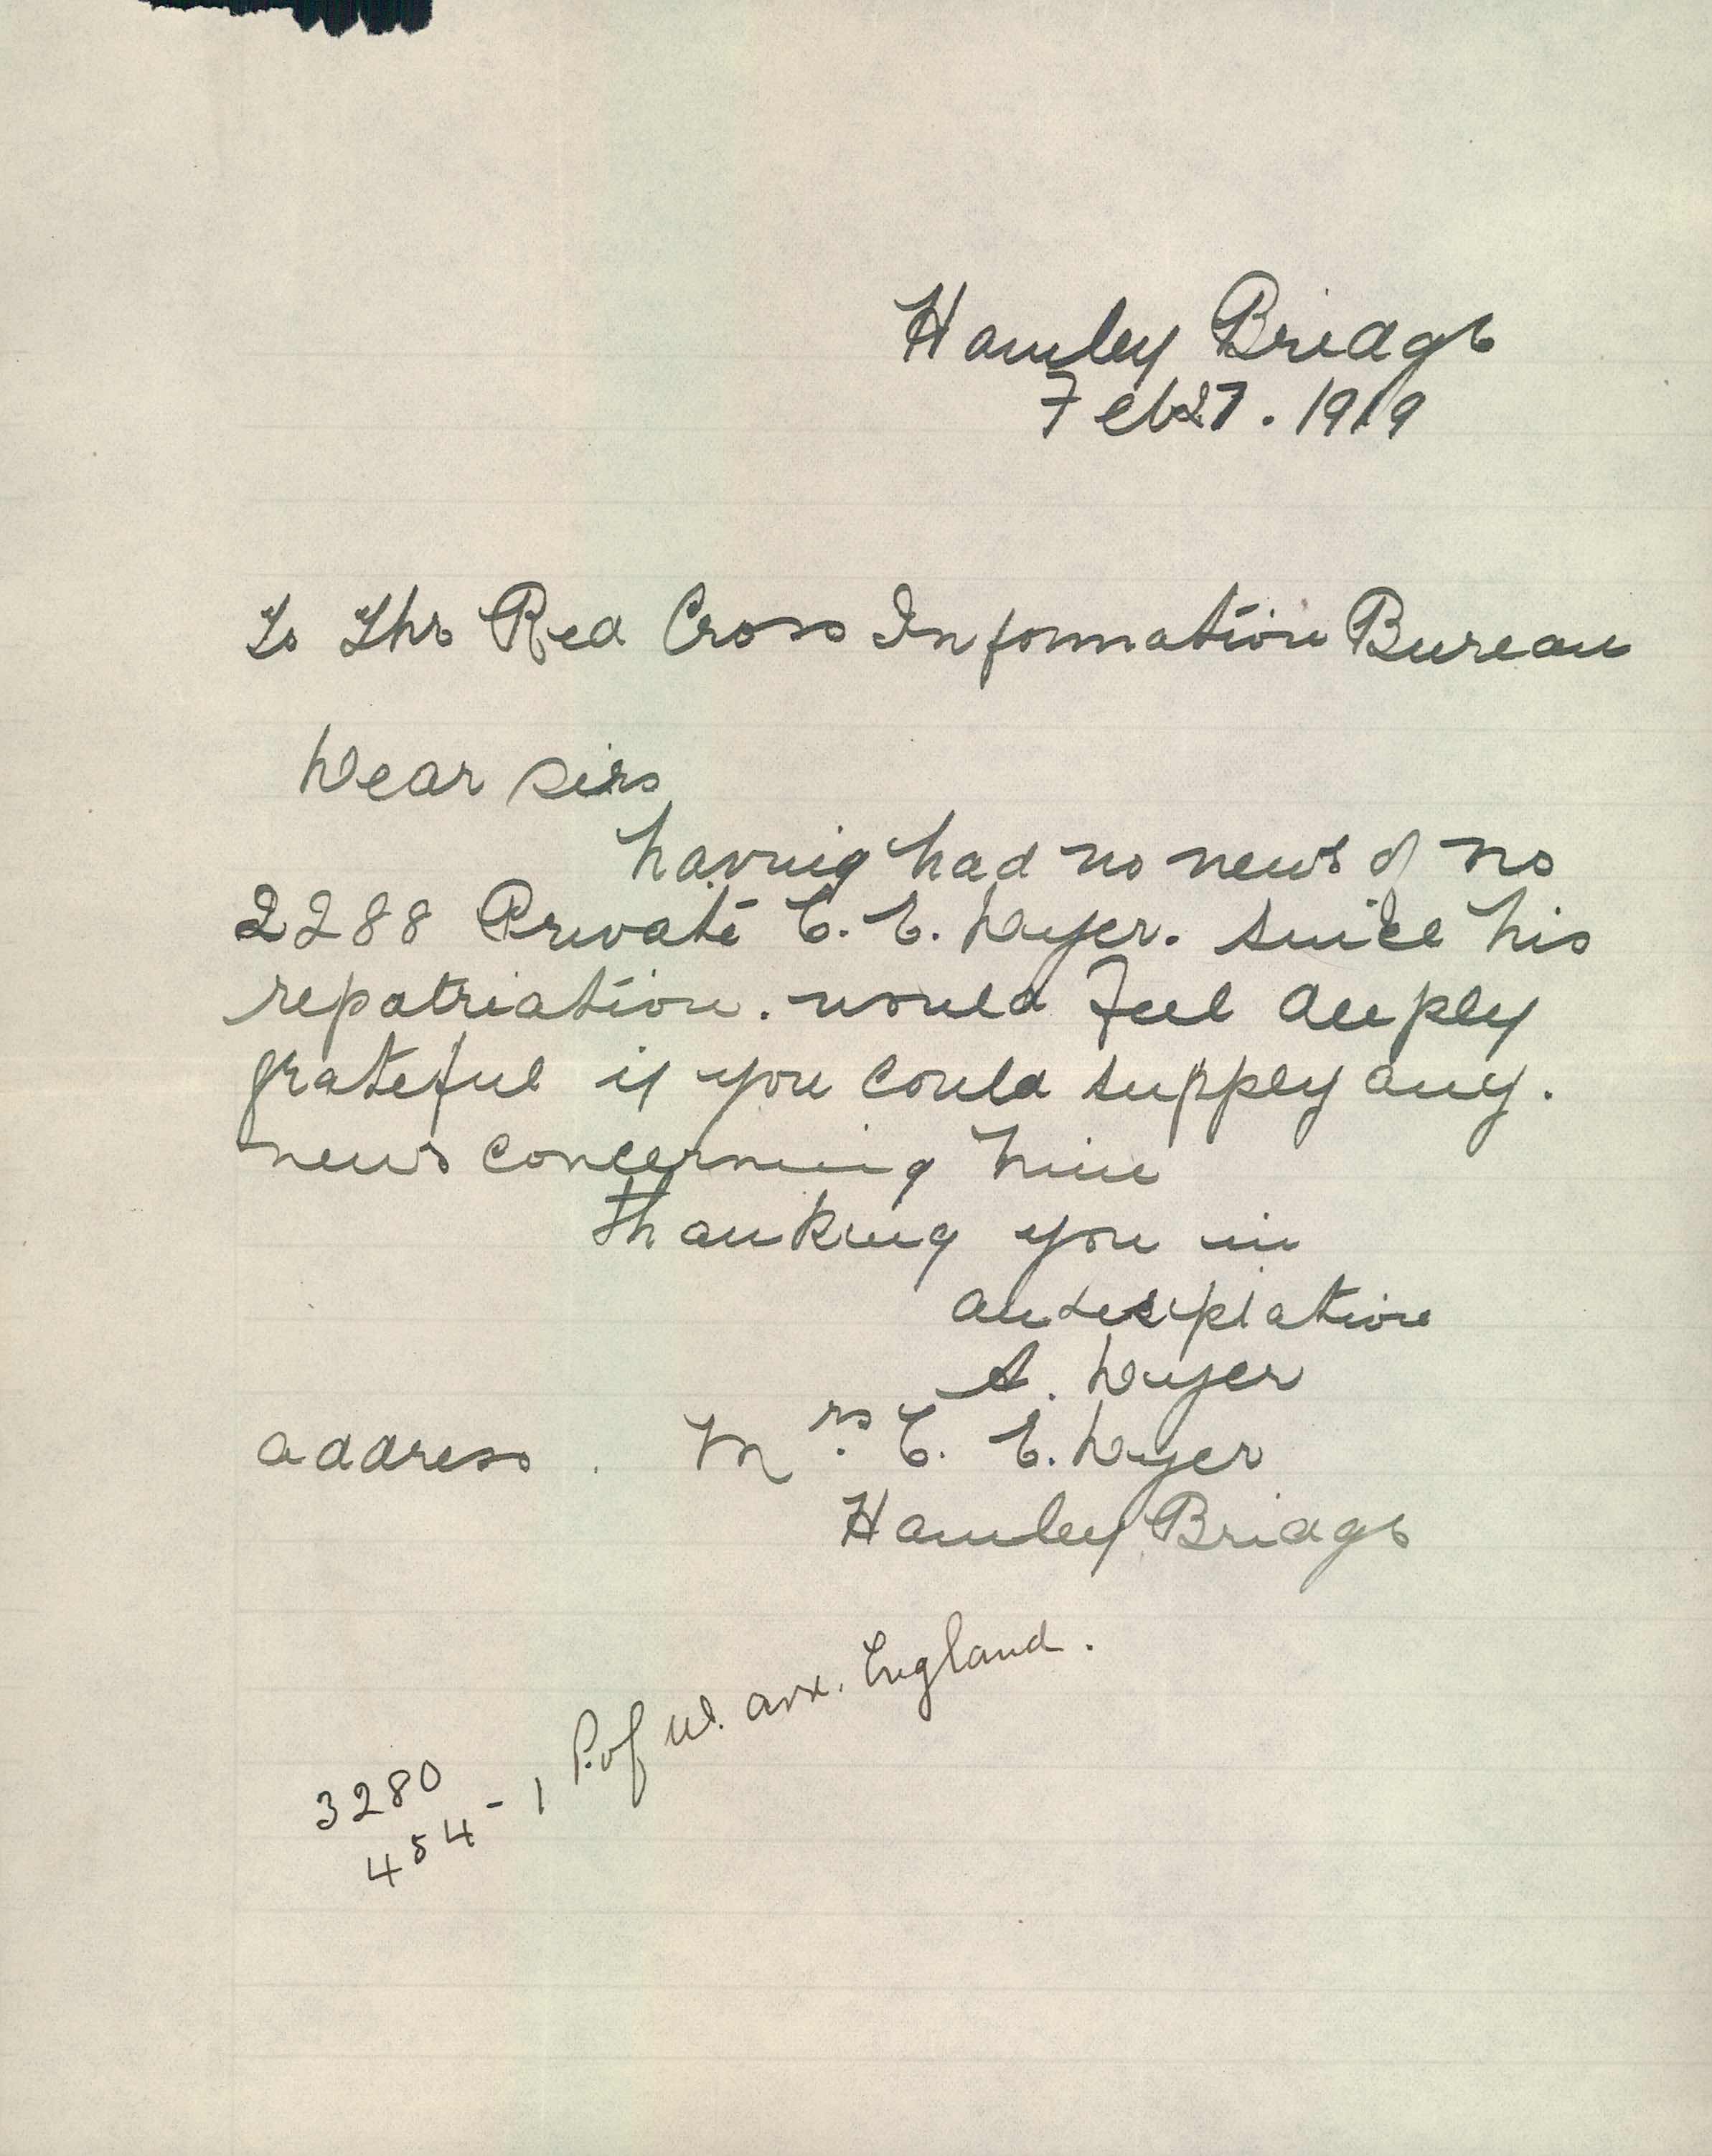 Hamley Bridge
Feb 27. 1919
To The Red Cross Information Bureau
Dear Sirs
having had no news of no
2288 Private C. E. Dwyer. since his
repatriation. would feel deeply
grateful if you could supply any.
news concerning him
thanking you in
A. Dwyer
address. Mrs. C. E. Dwyer
Hamley Bridge
P. of W. arr. England.
3280
454-1